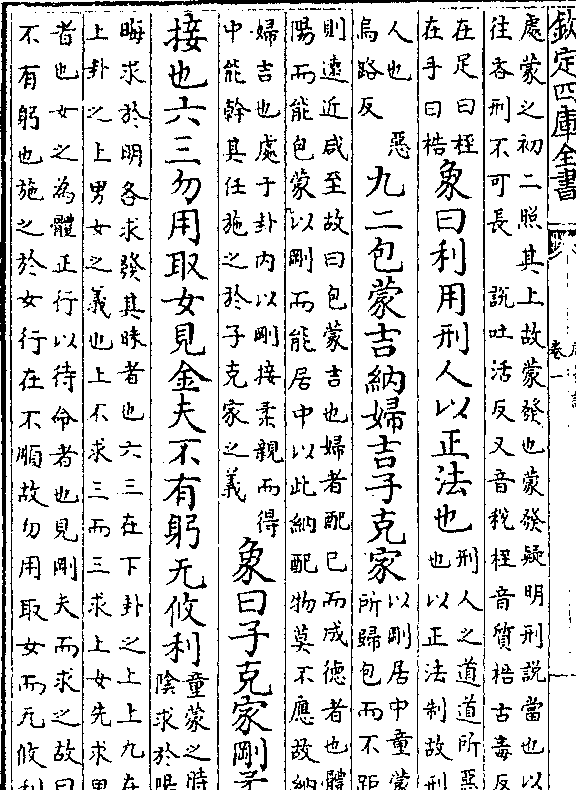 欽定四庫全書
卷一
處蒙之初二照其上故蒙發也蒙發疑明刑說當也以
往吝刑不可長 說吐活反又音稅桎音質梏古毒反
在足曰桎
在手曰梏
象曰利用刑人以正法也
刑人之道道所惡
也以正法制故刑
人也 惡
烏路反
九二包蒙吉納婦吉子克家
以剛居中童蒙
所歸包而不距
則遠近咸至故曰包蒙吉也婦者配已而成德者也體
陽而能包蒙以剛而能居中以此納配物莫不應故納
婦吉也處于卦內以剛接柔親而得
中能幹其任施之於子克家之義
象曰子克家剛柔
接也六三勿用取女見金夫不有躬无攸利
童蒙之時
陰求於
晦求於明各求發其昧者也六三在下卦之上上九在
上卦之上男女之義也上不求三而三求上女先求男
者也女之為體正行以待命者也見剛夫而求之故曰
不有躬也施之於女行在不順故勿用取女而无攸利